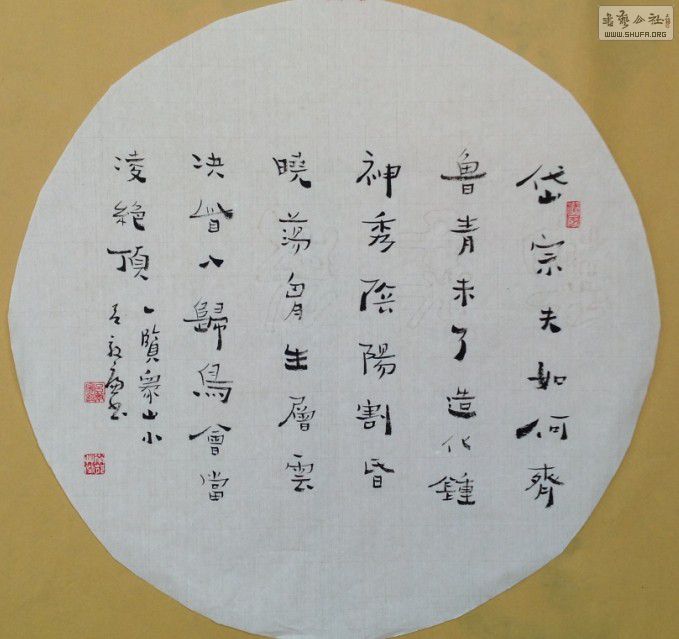 岱宗夫如何齊
魯青未了造化鍾
神秀陰陽割昏
曉蕩胷生層雲
决眥入歸鳥會當
凌絶頂
一覽衆山小
書藝公社
WWW.SHUFA.ORG